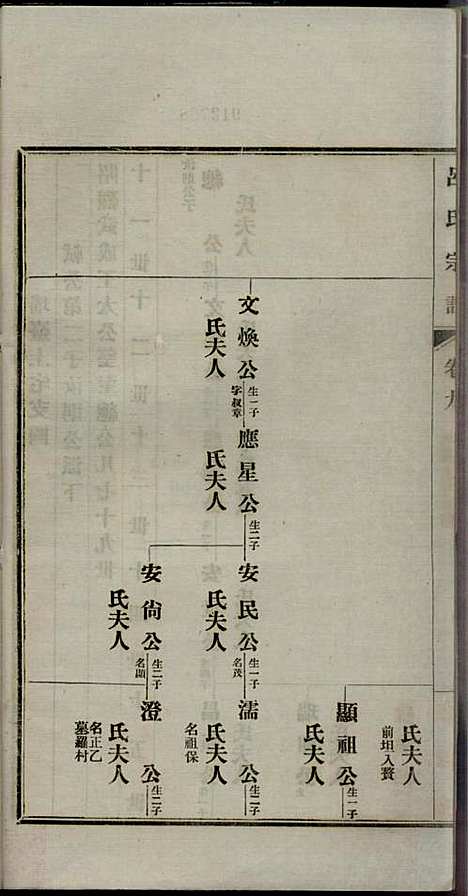 呂氏宗譜
卷九
氏夫人
前坦入贅
顯祖公
生一子
氏夫人
文煥公
生一子
字叔章
氏夫人
應星公
生二子
氏夫人
安民公
生一子
名茂
氏夫人
濡公
生二子
氏夫人
名祖保
安尙公
生二子
名顯
氏夫人
澄公
生二子
氏夫人
名正乙
墓羅村